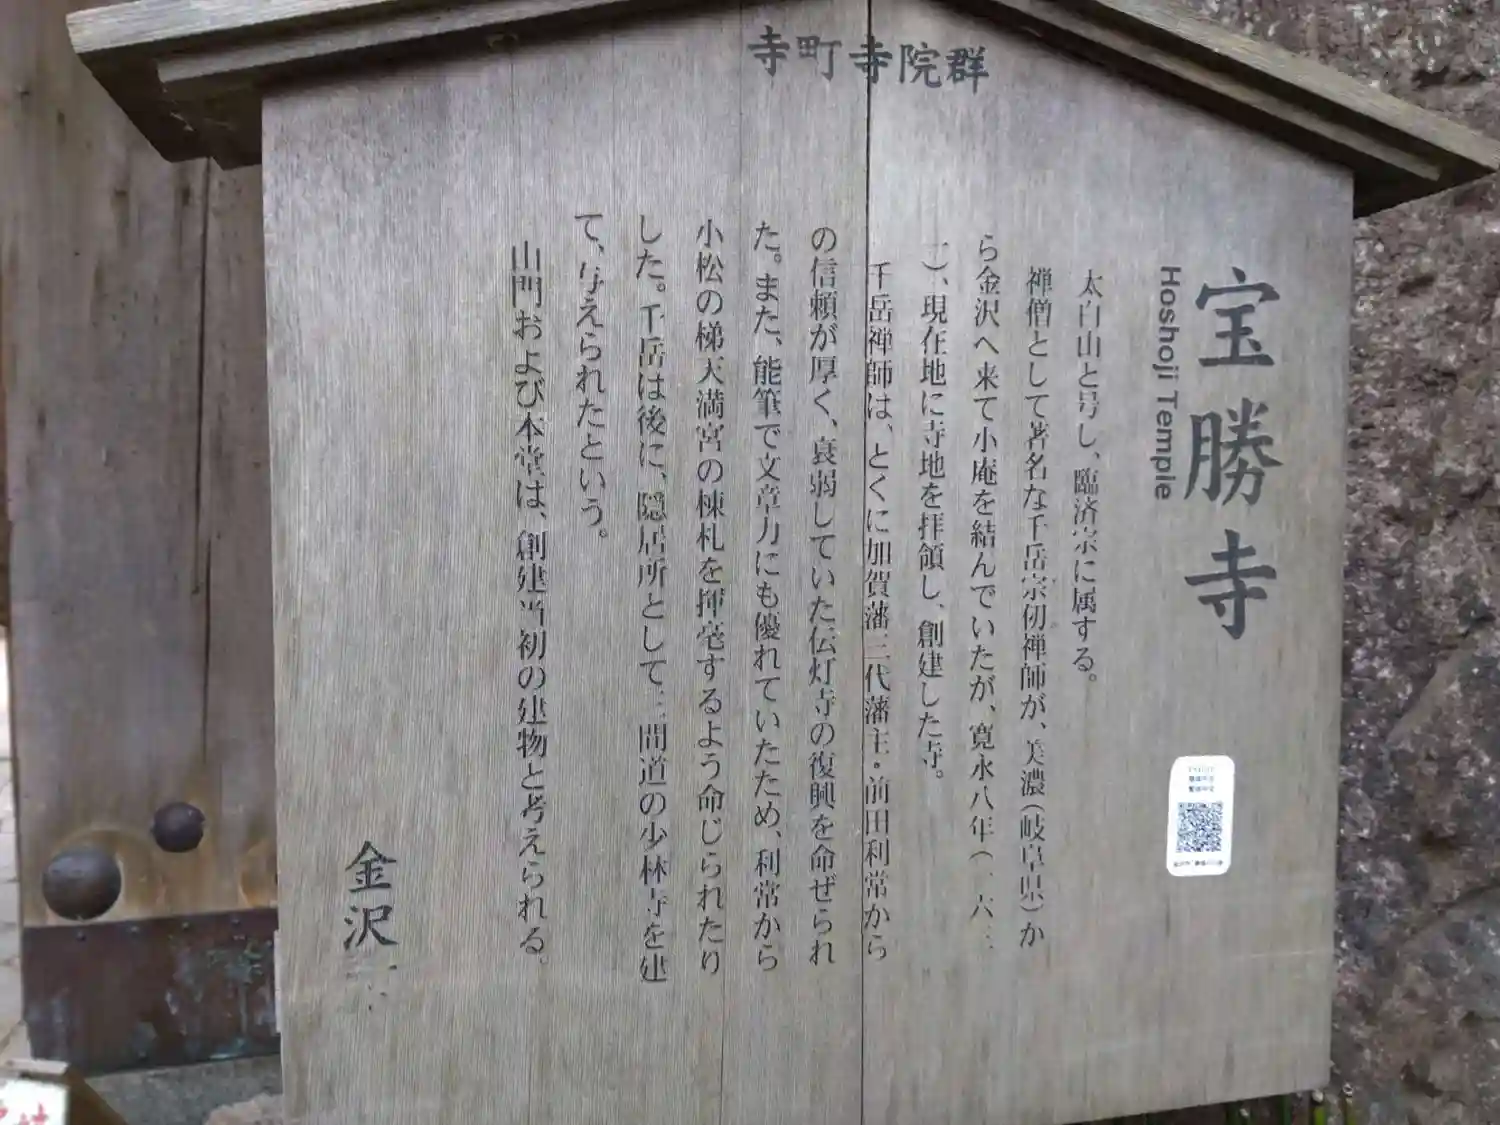 寺町寺院群
宝勝寺
Hoshoji Temple
太白山と号し、臨済宗に属する。
禅僧として著名な千岳宗仞禅師が、美濃(岐阜県)か
ら金沢へ来て小庵を結んでいたが、寛永八年(一六三
一)、現在地に寺地を拝領し、創建した寺。
千岳禅師は、とくに加賀藩三代藩主・前田利常から
の信頼が厚く、衰弱していた伝灯寺の復興を命ぜられ
た。また、能筆で文章力にも優れていたため、利常から
小松の梯天満宮の棟札を揮毫するよう命じられたり
した。千岳は後に、隠居所として三間道の少林寺を建
て、与えられたという。
山門および本堂は、創建当初の建物と考えられる。
金沢